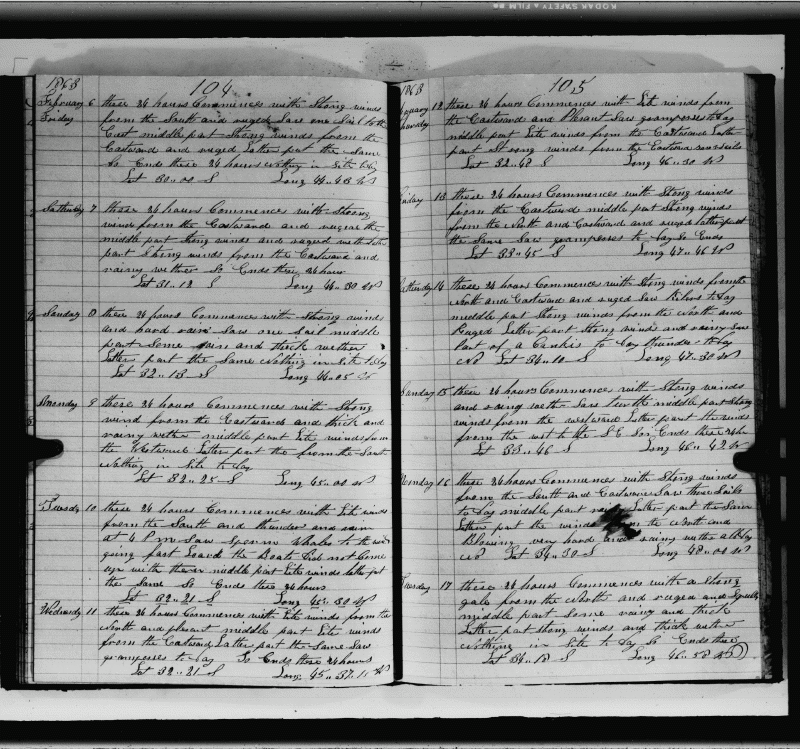 KODAK SAFETY FILM
1863
104
February 6 these 24 hours Commences with Strong winds
Friday from the South and ruged Saw one Sail to the
East middle part Strong winds from the
Eastward and ruged Latter part the Same
So Ends these 24 hours Nothing in Site to Day
Lat 30 .. 00 S Long 44 .. 43 W
Satturday 7 these 24 hours Commences with Strong
wind from the Eastward and rugear the
middle part Strong winds and ruged with Later
part Strong winds from the Eastward and
rainy wether So Ends these 24 hour
Lat 31 .. 12 S Long 44 .. 30 W
Sunday 8 these 24 hours Commences with Strong winds
and hard rain Saw one Sail middle
part Some rain and thick wether
Latter part the Same Nothing in Site to Day
Lat 32 .. 13 S Long 44 .. 05
Monday 9 these 24 hours Commences with Strong
wind from the Eastward and thick and
rainy wether middle part Lite winds from
the Westward Latter part the from the South
Nothing in Site to Day
Lat 32 .. 25 S Long 45 .. 00 W
Tuesday 10 these 24 hours Commences with Lite winds
from the South and thunder and rain
at 4 P m Saw Sperm Whales to the
going fast Loard the Boats Did not Come
up with them middle part Lite winds latter part
the Same So Ends these 24 hours
Lat 32 .. 21 S Long 45 .. 30 W
Wednesday 11 these 24 hours Commences with Lite winds from the
North and plesant middle part Lite winds
from the Eastward Latter part the Same Saw
grampuses to Day So Ends these 24 hours
Lat 32 .. 21 S Long 45 .. 37 .. 11 W
1863
105
12 these 24 hours Commences with Lite winds from
the Eastward and Plesant Saw grampuses to Day
middle part Lite winds from the Eastward Latte
part Strong winds from the Eastward
Lat 32 .. 48 S Long 46 .. 30 W
Friday 13 these 24 hours Commences with Strong winds
from the Eastward middle part Strong winds
from the North and Eastward and ruged latter part
the Same Saw grampuses to Day So Ends
Lat 33 .. 45 S Long 47 .. 46 W
Satturday 14 these 24 hours Commences with Strong winds from the
North and Eastward and ruged Saw Kilers to Day
middle part Strong winds from the North and
Ruged Latter part Strong winds and rainy Saw
Part of a to Day thunder to Day
No Lat 34 .. 10 S Long 47 .. 30 W
Sunday 15 these 24 hours Commences with Strong winds
and rainy wether Saw middle part Strong
winds from the westward Latter part the winds
from the west to the S E So Ends these 24 hr
Lat 35 .. 46 S Long 46 .. 42 W
Monday 16 these 24 hours Commences with Strong winds
from the South and Eastward Saw three Sails
to Day middle part Latter part the Same
Latter part the winds from the North and
Blowing very hard and rainy wether all Day
No Lat 34 .. 30 S Long 48 .. 04 W
Tuesday 17 these 24 hours Commences with a Strong
gale from the North and ruged and Squally
middle part Some rainy and thick
Latter part Strong winds and thick wether
Nothing in Site to Day So Ends these
Lat 34 .. 18 S Long 46 .. 58 W